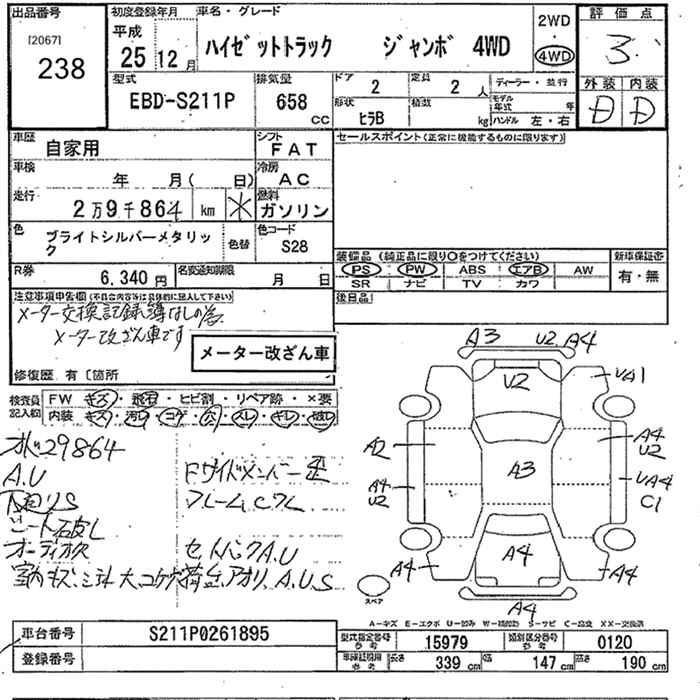 出品番号 初度登録年月 車名・グレード 2WD 評価点
[2067] 平成
238 25 12月 ハイゼットトラック ジャンボ 4WD 4WD 3
型式 排気量 ドア 2 定員 2人 ディーラー・並行 外装 内装
EBD-S211P 658 cc 形状 ヒラB 積数 kg モデル年式 年 ハンドル 左・右 D D
車歴 自家用 シフト FAT セールスポイント(正常に機能するものに限ります)
車検 年 月( 日) 冷房 AC
走行 2万9千864 km ＊ 燃料 ガソリン
色 ブライトシルバーメタリック 色替 色コード S28
装備品 (純正品に限り○をつけてください) 新車保証書
PS PW ABS エアB AW 有・無
SR ナビ TV カワ
R券 6,340円 名変通知期限 月 日 後日品
注意事項申告欄(不具合内容等は具体的に記入して下さい)
メーター交換記録簿なしの為
メーター改ざん車です
メーター改ざん車
修復歴 有〔箇所
検査員記入欄 FW キズ・飛石・ヒビ割・リペア跡・×要
内装 キズ・汚れ・コゲ・穴・スレ・キレ
29864
A.U
下回りS
シート石皮し
オーディオ欠
Fサイドメンバー歪
セットバックA.U
A3 U2 A4
U2 UA1
A2 A4 U2
A3
A4 U2 UA4 C1
A4 A4 A4
A4
スペア
A-キズ E-エクボ U-凹み W-補修跡 S-サビ C-腐食 XX-交換済
車台番号 S211P0261895
登録番号
型式指定番号 参考 15979 類別区分番号 参考 0120
車庫証明用 参考 長さ 339cm 幅 147cm 高さ 190cm